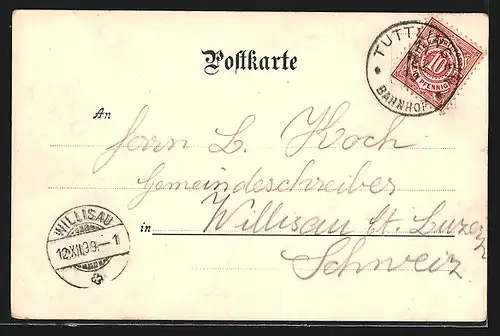 TUTTL
BAHNHOF
10
PFENNIG
Postkarte
An
Herrn L. Koch
Gemeindeschreiber
in Willisau Ct. Luzern
Schweiz
WILLISAU
12.XII.99.-1